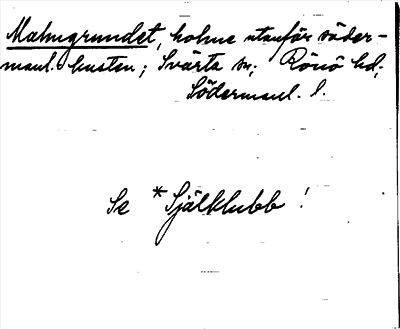 Malmgrundet, holme utanför söder-
manl. kusten; Svärta sn; Rönö hd;
Södermanl. l.
Se *Själklubb !